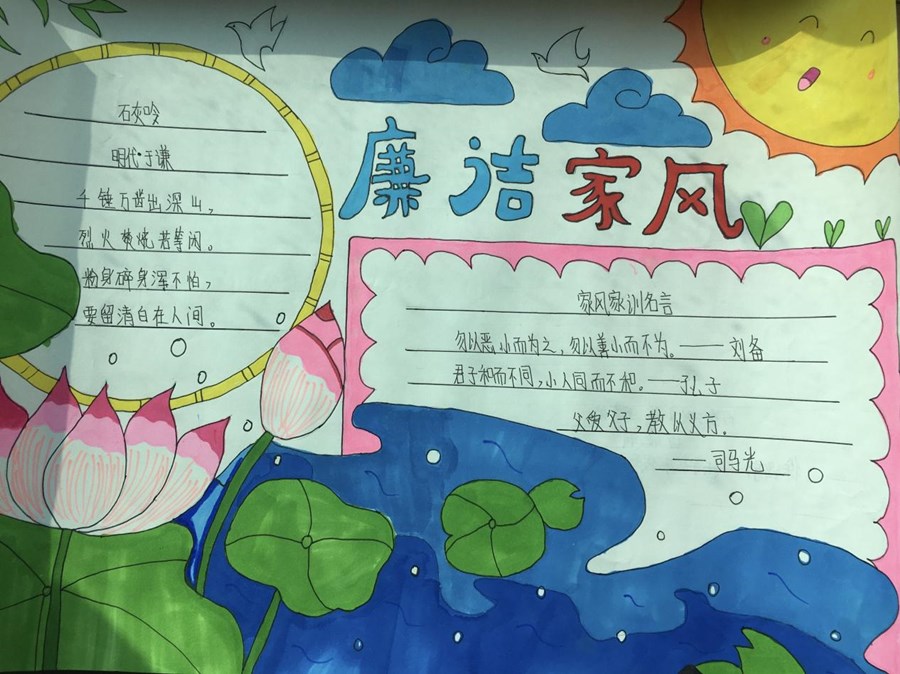 廉洁家风
石灰吟
明代·于谦
千锤万凿出深山，
烈火焚烧若等闲。
粉身碎身浑不怕，
要留清白在人间。
家风家训名言
勿以恶小而为之，勿以善小而不为。——刘备
君子和而不同，小人同而不和。——孔子
父爱父子，教以义方。
——司马光